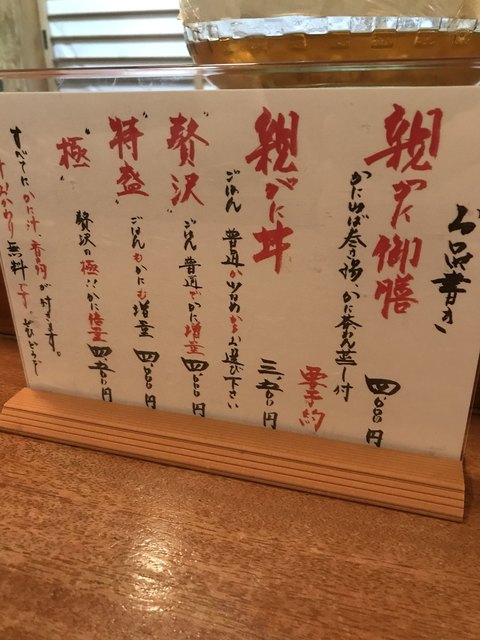 お品書き
親がに御膳
四、〇〇〇円
かに茶わん蒸し付
要予約
親がに丼
三、五〇〇円
ごはん 普通か少なめからお選び下さい
"贅沢"
ごはん 普通でかに増量 四、〇〇〇円
"特盛"
ごはんもかにも増量 四、〇〇〇円
"極"
贅沢の極!!かに倍量 四、五〇〇円
すべてに、かに汁 香の物が付きます。
おかわり無料です。ぜひどうぞ